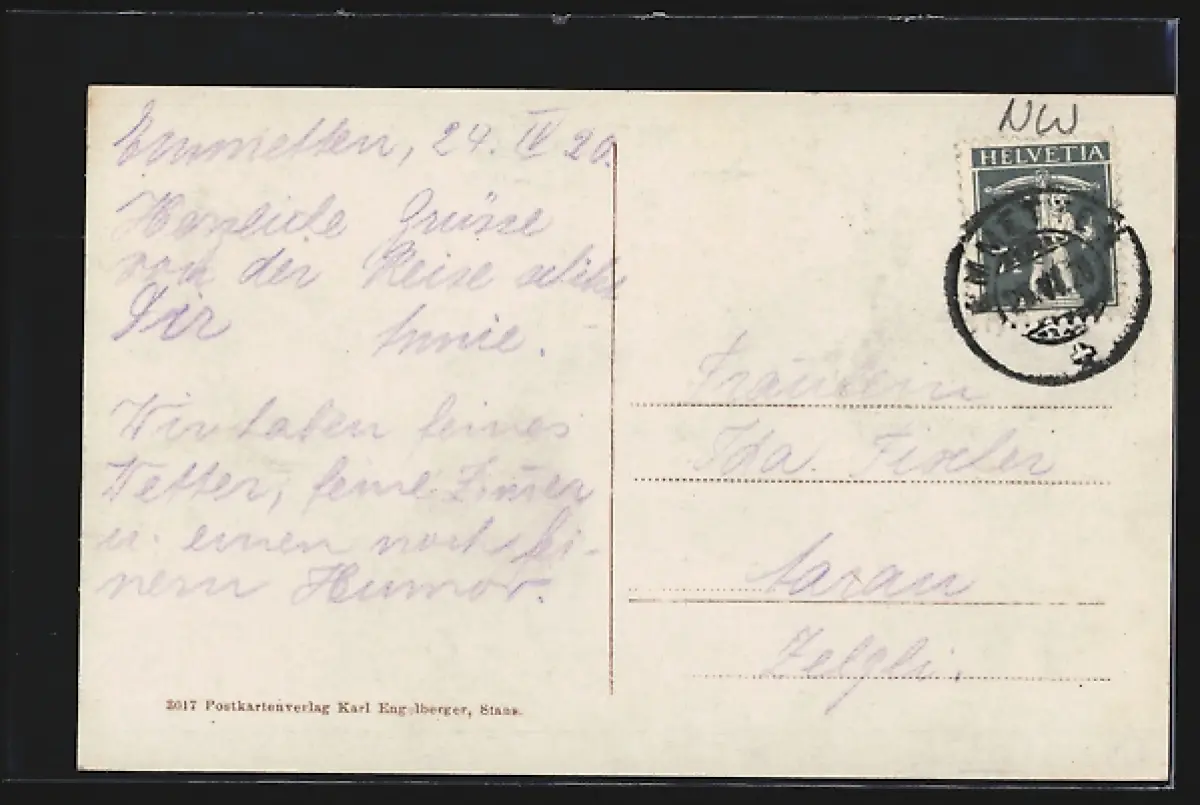 Emmetten, 24. IV 20.
Herzliche Grüsse
von der Reise
Dir Annie.
Wir haben feines
Wetter, feine Zim̄er
u. einen noch fei-
nern Humor.
3017 Postkartenverlag Karl Engelberger, Stans.
NW
HELVETIA
EMMETTEN
Fräulein
Ida. Fischer
Aarau
Zelgli.